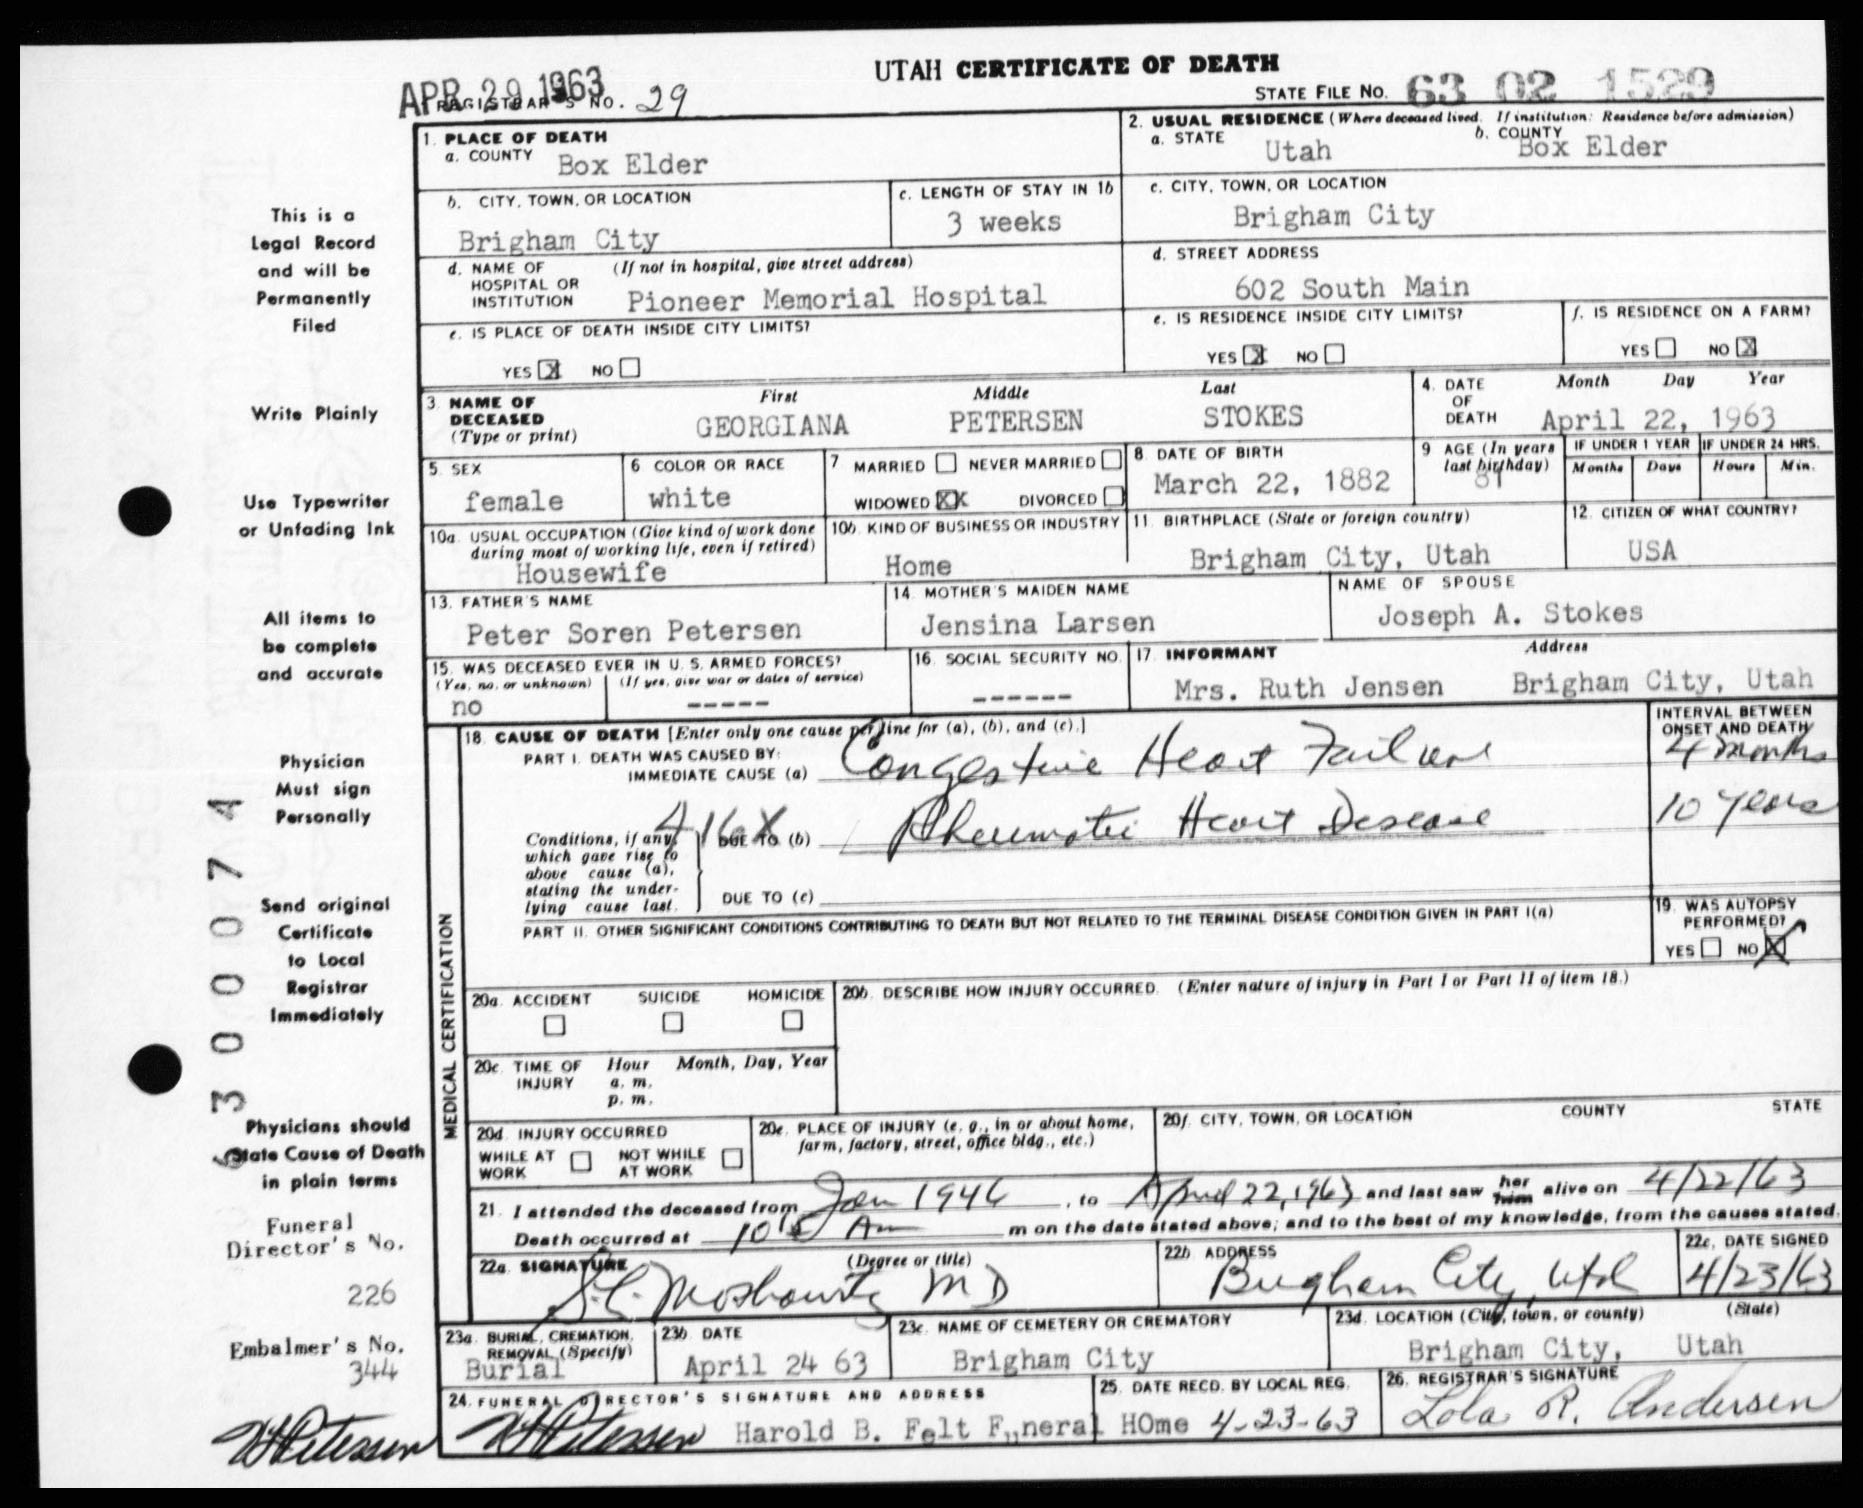 UTAH CERTIFICATE OF DEATH
APR 29 1963
REGISTRAR'S NO. 29
STATE FILE NO. 63 02 1529
1. PLACE OF DEATH
a. COUNTY Box Elder
2. USUAL RESIDENCE (Where deceased lived. If institution: Residence before admission)
a. STATE Utah b. COUNTY Box Elder
b. CITY, TOWN, OR LOCATION Brigham City
c. LENGTH OF STAY IN 1b 3 weeks
c. CITY, TOWN, OR LOCATION Brigham City
d. NAME OF HOSPITAL OR INSTITUTION (If not in hospital, give street address) Pioneer Memorial Hospital
d. STREET ADDRESS 602 South Main
e. IS PLACE OF DEATH INSIDE CITY LIMITS?
YES X NO
e. IS RESIDENCE INSIDE CITY LIMITS?
YES X NO
f. IS RESIDENCE ON A FARM?
YES NO X
3. NAME OF DECEASED (Type or print)
First Middle Last
GEORGIANA PETERSEN STOKES
4. DATE OF DEATH Month Day Year
April 22, 1963
5. SEX female
6 COLOR OR RACE white
7 MARRIED NEVER MARRIED
WIDOWED XX DIVORCED
8. DATE OF BIRTH March 22, 1882
9 AGE (In years last birthday) 81
IF UNDER 1 YEAR Months Days
IF UNDER 24 HRS. Hours Min.
10a. USUAL OCCUPATION (Give kind of work done during most of working life, even if retired) Housewife
10b. KIND OF BUSINESS OR INDUSTRY Home
11. BIRTHPLACE (State or foreign country) Brigham City, Utah
12. CITIZEN OF WHAT COUNTRY? USA
13. FATHER'S NAME Peter Soren Petersen
14. MOTHER'S MAIDEN NAME Jensina Larsen
NAME OF SPOUSE Joseph A. Stokes
15. WAS DECEASED EVER IN U. S. ARMED FORCES?
(Yes, no, or unknown) (If yes, give war or dates of service)
no -----
16. SOCIAL SECURITY NO. ------
17. INFORMANT Address
Mrs. Ruth Jensen Brigham City, Utah
18. CAUSE OF DEATH [Enter only one cause per line for (a), (b), and (c).]
INTERVAL BETWEEN ONSET AND DEATH
PART I. DEATH WAS CAUSED BY:
IMMEDIATE CAUSE (a) Congestive Heart Failure 4 months
416X
Conditions, if any, which gave rise to above cause (a), stating the underlying cause last.
DUE TO (b) Rheumatic Heart Disease 10 years
DUE TO (c)
PART II. OTHER SIGNIFICANT CONDITIONS CONTRIBUTING TO DEATH BUT NOT RELATED TO THE TERMINAL DISEASE CONDITION GIVEN IN PART I(a)
19. WAS AUTOPSY PERFORMED?
YES NO X
MEDICAL CERTIFICATION
20a. ACCIDENT SUICIDE HOMICIDE
20b. DESCRIBE HOW INJURY OCCURRED. (Enter nature of injury in Part I or Part II of item 18.)
20c. TIME OF INJURY Hour Month, Day, Year
a. m.
p. m.
20d. INJURY OCCURRED
WHILE AT WORK NOT WHILE AT WORK
20e. PLACE OF INJURY (e. g., in or about home, farm, factory, street, office bldg., etc.)
20f. CITY, TOWN, OR LOCATION COUNTY STATE
21. I attended the deceased from Jan 1946, to April 22, 1963 and last saw her him alive on 4/22/63
Death occurred at 10 15 Am m on the date stated above; and to the best of my knowledge, from the causes stated.
22a. SIGNATURE (Degree or title) S.C. Moskowitz MD
22b. ADDRESS Brigham City, Utah
22c. DATE SIGNED 4/23/63
23a. BURIAL, CREMATION, REMOVAL (Specify) Burial
23b. DATE April 24 63
23c. NAME OF CEMETERY OR CREMATORY Brigham City
23d. LOCATION (City, town, or county) (State)
Brigham City, Utah
24. FUNERAL DIRECTOR'S SIGNATURE AND ADDRESS
Petersen Harold B. Felt Funeral HOme
25. DATE RECD. BY LOCAL REG. 4-23-63
26. REGISTRAR'S SIGNATURE Lola R. Andersen
This is a
Legal Record
and will be
Permanently
Filed
Write Plainly
Use Typewriter
or Unfading Ink
All items to
be complete
and accurate
Physician
Must sign
Personally
Send original
Certificate
to Local
Registrar
Immediately
Physicians should
State Cause of Death
in plain terms
Funeral
Director's No.
226
Embalmer's No.
344
Petersen
6300074